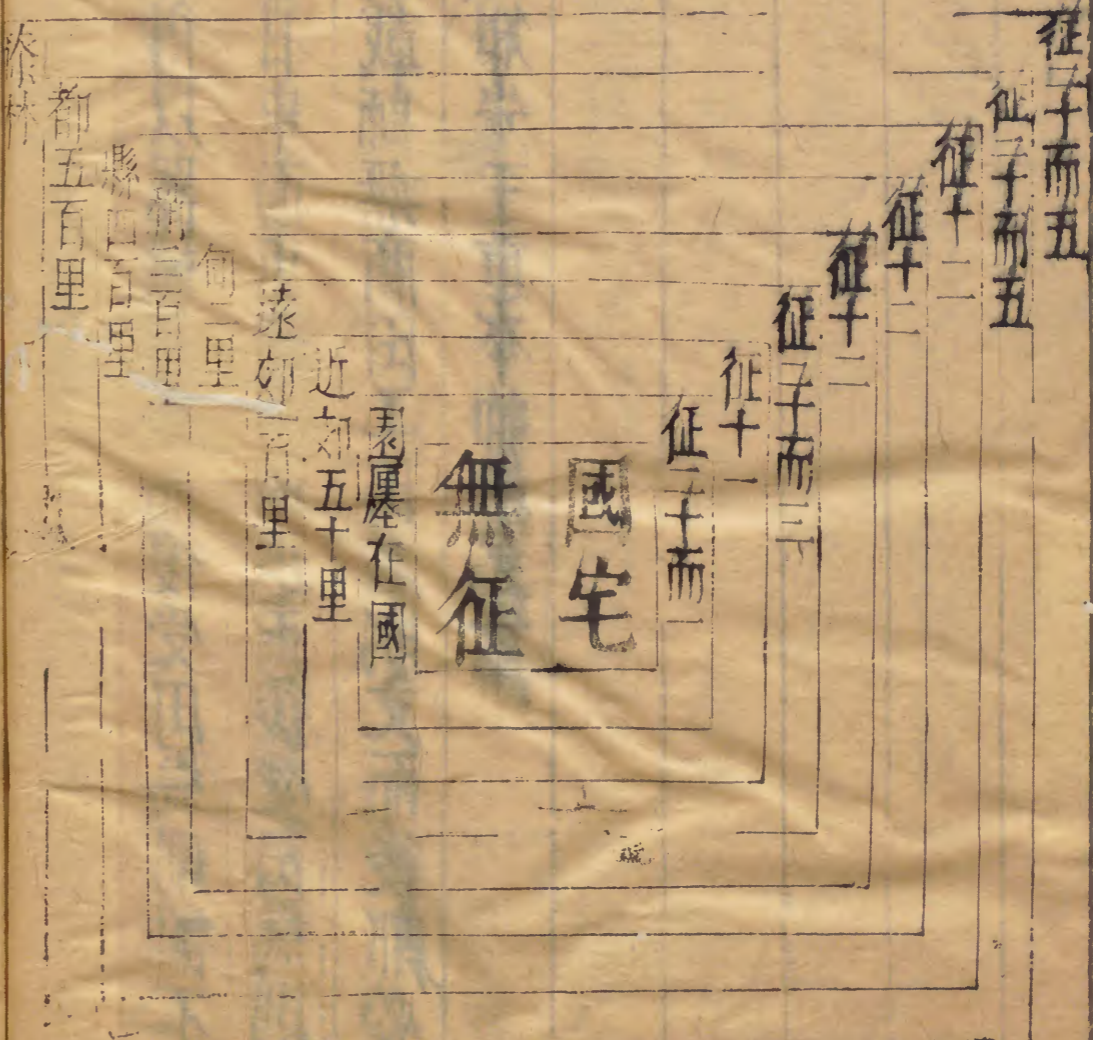 征二十而五
征二十而五
征十二
征十二
征十二
征二十而三
征十一
征二十而一
國宅
無征
園廛在國
近郊五十里
遠郊一百里
甸二里
稍三百里
縣四百里
都五百里
漆林